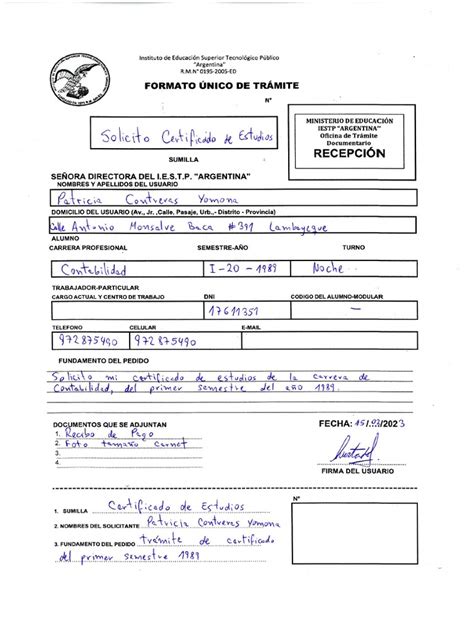 Instituto de Educación Superior Tecnológico Público
"Argentina"
R.M.N° 0195-2005-ED
FORMATO ÚNICO DE TRÁMITE
N°
Solicito Certificado de Estudios
SUMILLA
MINISTERIO DE EDUCACIÓN
IESTP "ARGENTINA"
Oficina de Trámite
Documentario
RECEPCIÓN
SEÑORA DIRECTORA DEL I.E.S.T.P. "ARGENTINA"
NOMBRES Y APELLIDOS DEL USUARIO
Patricia Contreras Yomona
DOMICILIO DEL USUARIO (Av., Jr. ,Calle, Pasaje, Urb.,- Distrito - Provincia)
Calle Antonio Monsalve Baca # 391 Lambayeque
ALUMNO
CARRERA PROFESIONAL SEMESTRE-AÑO TURNO
Contabilidad I-20-1989 Noche
TRABAJADOR-PARTICULAR
CARGO ACTUAL Y CENTRO DE TRABAJO DNI CODIGO DEL ALUMNO-MODULAR
17611351
TELEFONO CELULAR E-MAIL
972875490 972875490
FUNDAMENTO DEL PEDIDO
Solicito mi certificado de estudios de la carrera de
Contabilidad, del primer semestre del año 1989.
DOCUMENTOS QUE SE ADJUNTAN FECHA: 15/03/2023
1. Recibo de Pago
2. Foto tamaño carnet
3.
4.
FIRMA DEL USUARIO
N°
1. SUMILLA Certificado de Estudios
2. NOMBRES DEL SOLICITANTE Patricia Contreras Yomona
3. FUNDAMENTO DEL PEDIDO trámite de certificado
del primer semestre 1989